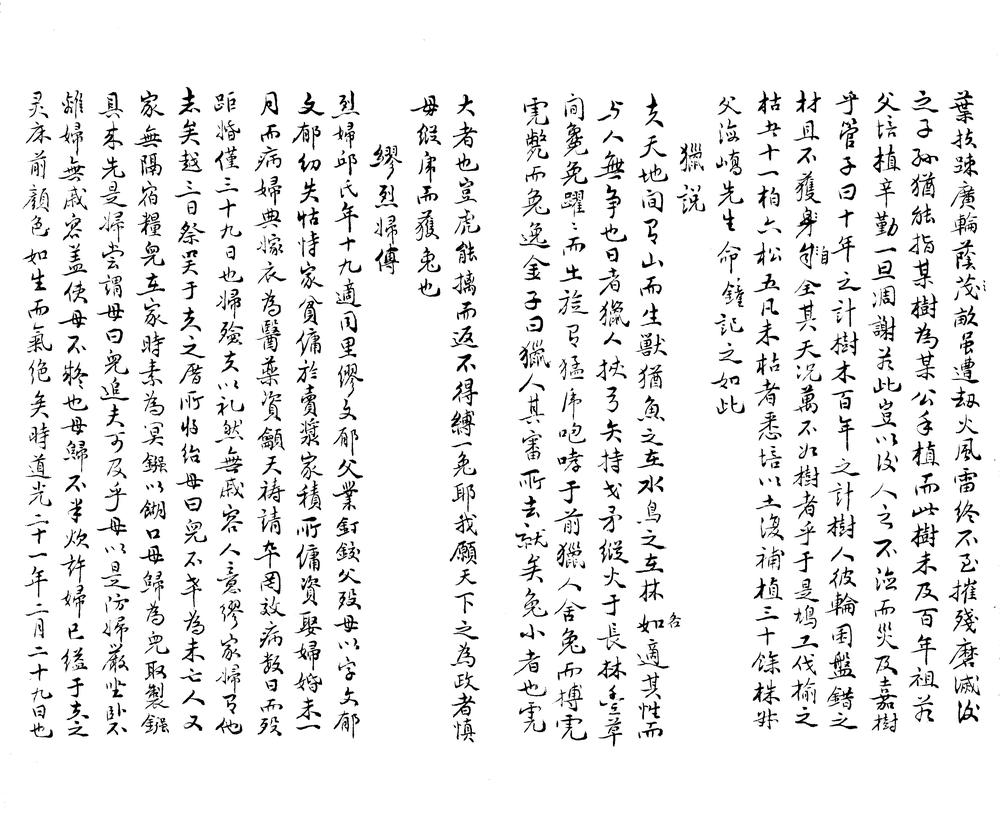 葉扶疎廣輪蔭茂畝虽遭劫火風雷終不至摧殘磨滅後
之子孫猶能指某樹為某公手植而此樹未及百年祖若
父培植辛勤一旦凋謝若此豈以後人之不淑而災及嘉樹
乎管子曰十年之計樹木百年之計樹人彼輪囷盤錯之
材且不獲自全其天况萬不如樹者乎于是鳩工伐榆之
枯者十一柏六松五凡未枯者悉培以土復補植三十餘株
父海嶠先生命鍾記之如此
獵説
夫天地间有山而生獸猶魚之在水鳥之在林各適其性而
与人無争也日者獵人挾弓矢持戈矛縱火于長林豐草
间㲋兔躍〻而出旋有猛虎咆哮于前獵人舍兔而搏虎
虎斃而兔逸金子曰獵人其審所去就矣兔小者也虎
大者也豈虎能擒而返不得縛一兔耶我願天下之為政者慎
毋縱虎而獲兔也
繆烈婦傳
烈婦邱氏年十九適同里繆文郁父業釘鉸父殁母以字文郁
文郁幼失怙恃家貧傭於賣漿家積所傭資娶婦婚未一
月而病婦典嫁衣為醫藥資籲天禱請卒罔效病数日而殁
距婚僅三十九日也婦殮夫以礼然無戚容人意繆家婦有他
志矣越三日祭哭于夫之厝所归紿母曰兒不幸為未亡人又
家無隔宿糧兒在家時素為冥鏹以餬口母歸為兒取製鏹
具来先是婦尝謂母曰兒追夫可及乎母以是防婦嚴坐卧不
離婦無戚容盖使母不疑也母歸不半炊許婦已缢于夫之
灵床前顔色如生而氣绝矣時道光二十一年二月二十九日也